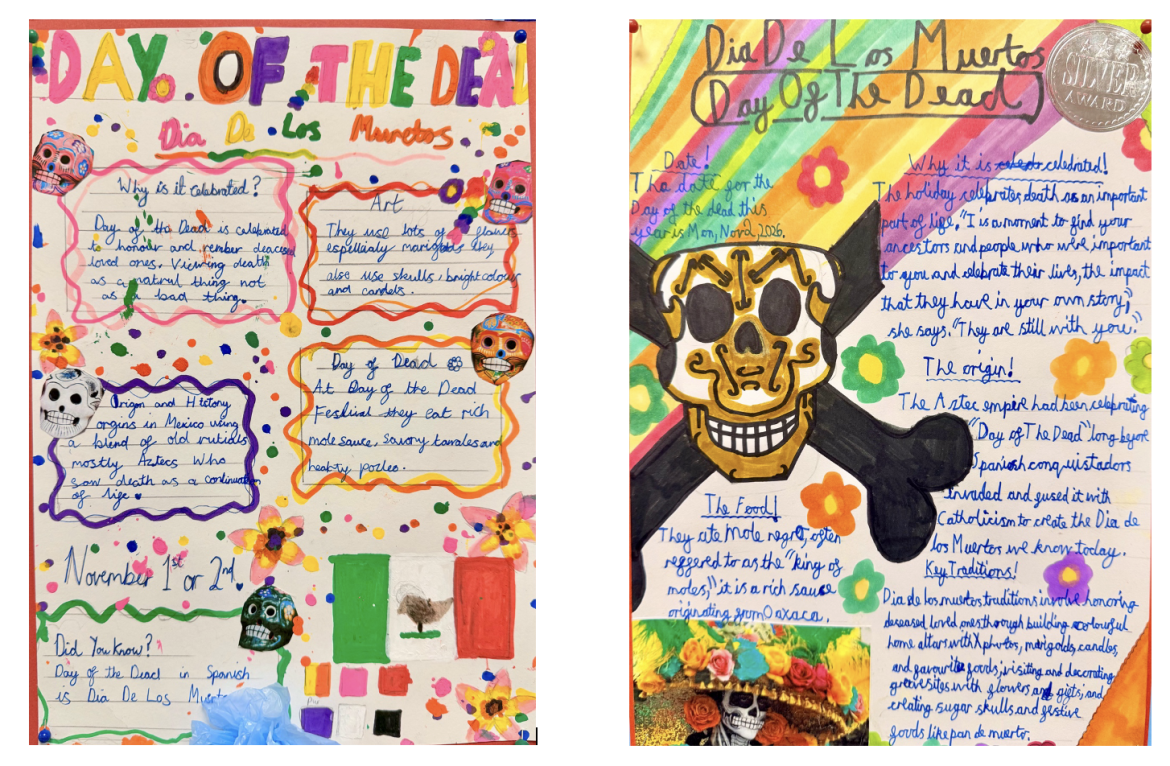 DAY OF THE DEAD
Dia De Los Muretos
Why is it celebrated?
Day of the Dead is celebrated
to honour and rember deacesed
loved ones. Viewing death
as a natural thing not
as a bad thing.
Art
They use lots of flowers
espellialy marigolds they
alse use skulls, bright colours
and candels.
Origin and History
origins in Mexico using
a blend of old rutials
mostly Aztecs who
saw death as a continuation
of life
Day of Dead
At Day of the Dead
Festival they eat rich
mole sauce, savory tamales and
hearty pozleo.
November 1st or 2nd
Did You Know?
Day of the Dead in Spanish
is Dia De Los
Dia De Los Muertos
Day Of The Dead
SILVER
AWARD
Date!
The date for the
Day of the dead this
year is Mon, Nov 2, 2026.
Why it is celebrated!
The holiday celebrates death as an important
part of life, "I is a moment to find your
ancestors and people who were important
to you and celebrate their lives, the impact
that they have in your own story,"
she says. "They are still with you."
The origin!
The Aztec empire had been celebrating
"Day of The Dead" long before
Spanish conquistadors
invaded and fused it with
Catholicism to create the Dia de
los Muertos we know today.
Key Traditions!
Dia de los muertos traditions involve honoring
deceased loved ones through building colourful
home altars with photos, marigolds, candles,
and favourite foods, visiting and decorating
gravesites with flowers and gifts, and
creating sugar skulls and festive
foods like pan de muerto.
The Food!
They ate Mole negro, often
reffered to as the "king of
moles," it is a rich sauce
originating from Oaxaca.